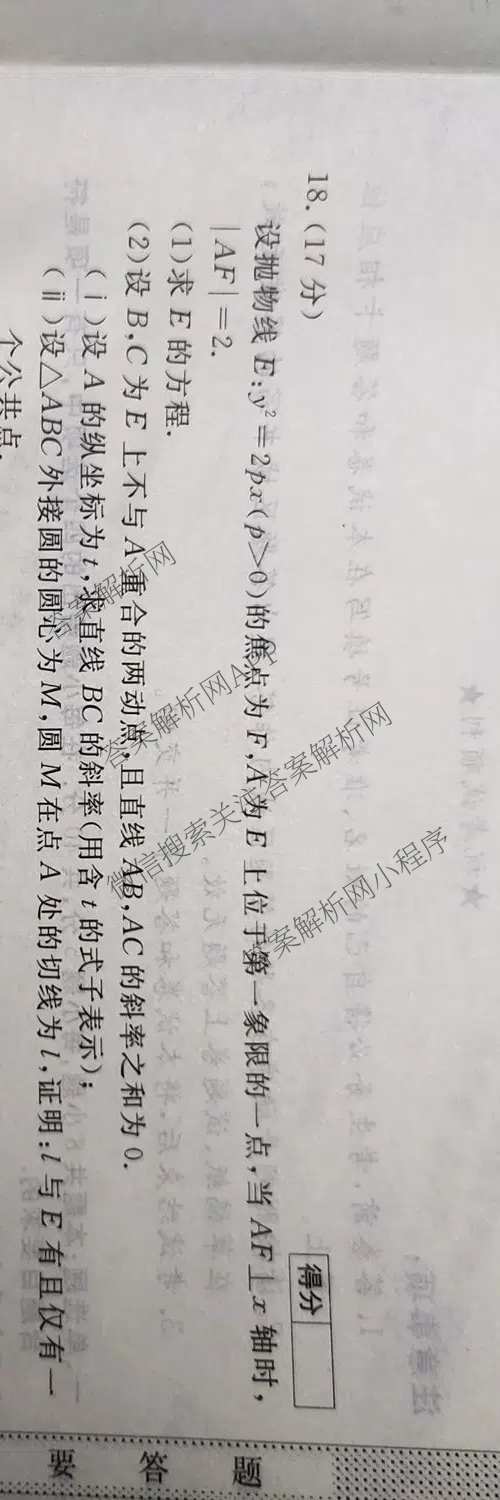 18.(17 分)
得分
设抛物线 E:y²=2px(p>0)的焦点为 F,A 为 E 上位于第一象限的一点,当 AF⊥x 轴时,
|AF|=2.
(1)求 E 的方程.
(2)设 B,C 为 E 上不与 A 重合的两动点,且直线 AB,AC 的斜率之和为 0.
(ⅰ)设 A 的纵坐标为 t,求直线 BC 的斜率(用含 t 的式子表示);
(ⅱ)设△ABC 外接圆的圆心为 M,圆 M 在点 A 处的切线为 l,证明:l 与 E 有且仅有一
个公共点.
答案解析网
答案解析网APP
微信搜索关注答案解析网
答案解析网小程序
要 答 题